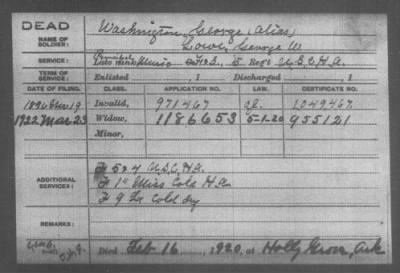 DEAD
NAME OF SOLDIER:
Washington, George (alias)
Love, George W.
SERVICE:
Late Rank, Music, Regt U.S.C.H.A.
TERM OF SERVICE:
Enlisted , 1 Discharged , 1
DATE OF FILING. CLASS. APPLICATION NO. LAW. CERTIFICATE NO.
Invalid, 971467 1049467
1922 Mar 23 Widow, 1186653 5-1-20 955121
Minor,
ADDITIONAL SERVICES:
F 5 & 4 U.S.C.H.A.
F 1st Miss Cold H.A.
REMARKS:
Died Feb 16 , 1920, at Holly Grove, Ark